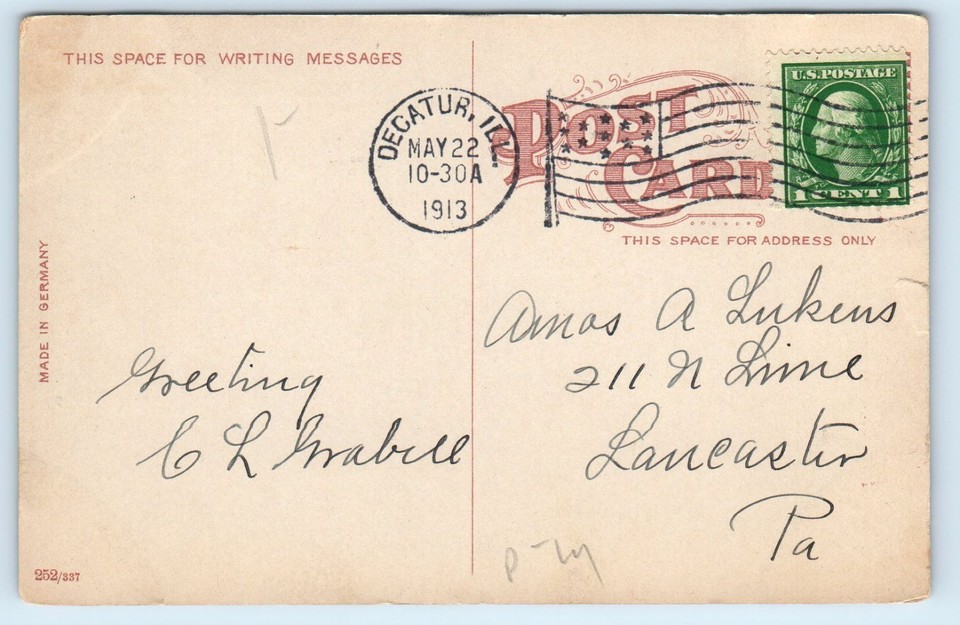 THIS SPACE FOR WRITING MESSAGES
DECATUR, ILL.
MAY 22
10-30A
1913
POST CARD
U.S. POSTAGE
1 CENT 1
THIS SPACE FOR ADDRESS ONLY
MADE IN GERMANY
Greeting
C L Grabill
Amos A Lukens
211 N Lime
Lancaster
Pa
252/337